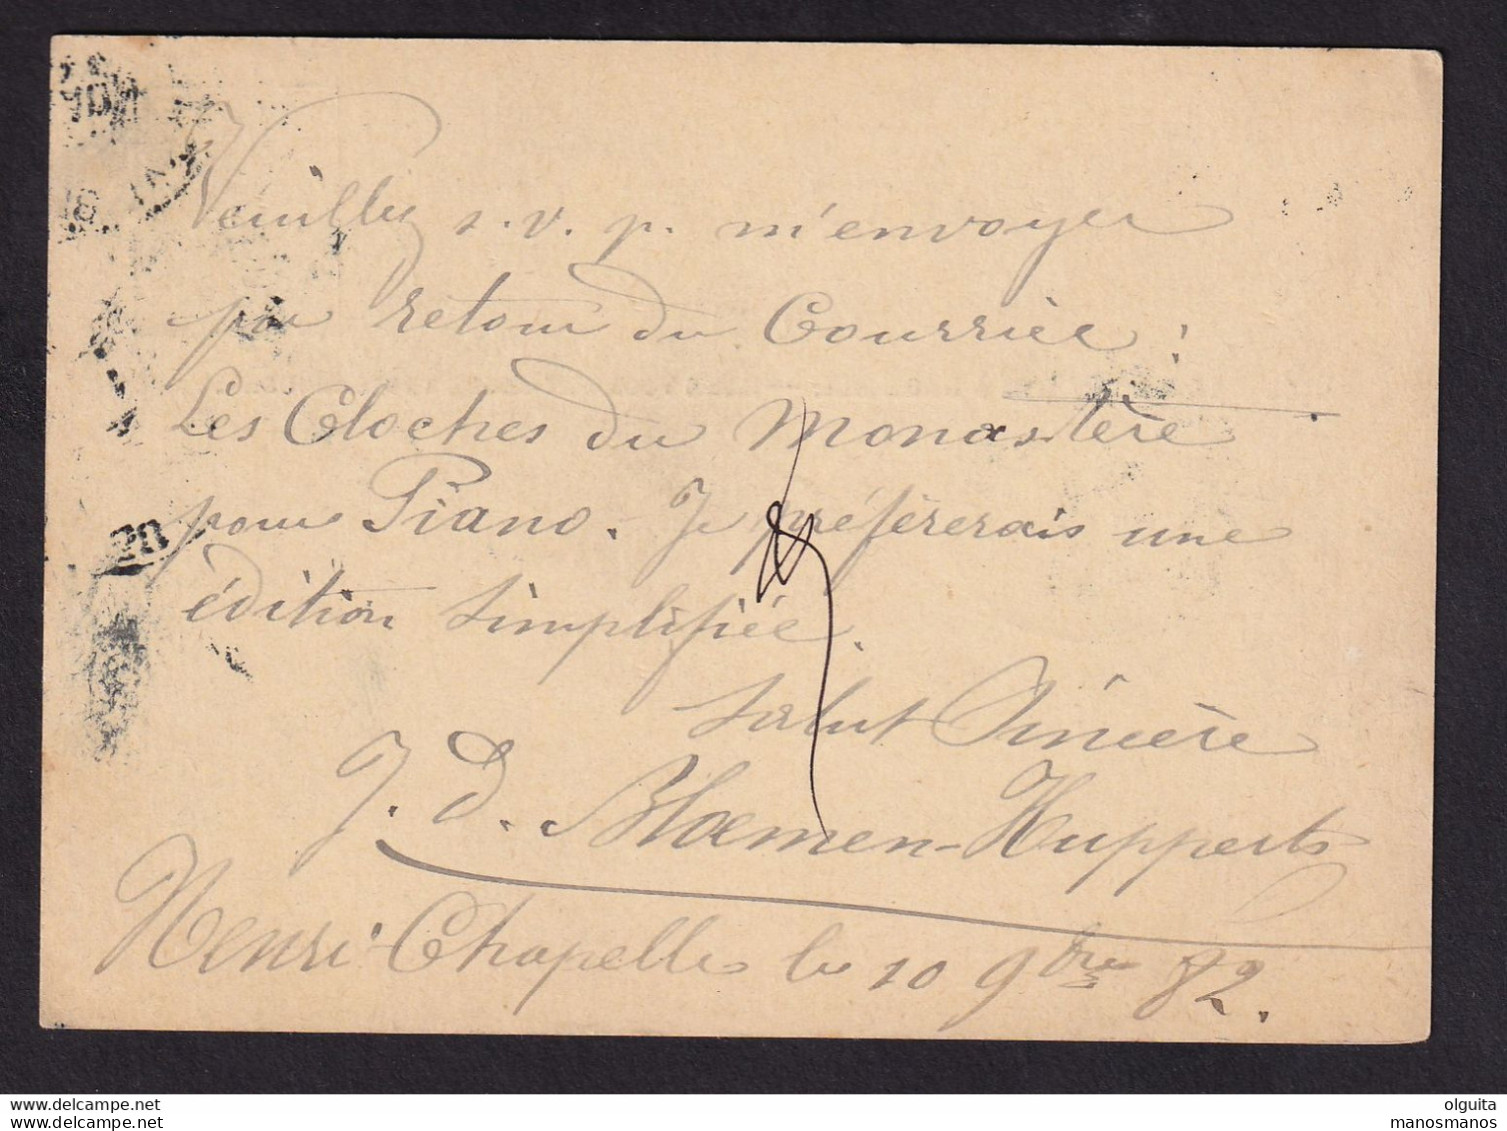 Veuillez s.v.p. m'envoyer
par retour du Courrier :
Les Cloches du Monastère
pour Piano. Je préfèrerais une
édition simplifiée.
Salut Sincère
J. D. Bloemen-Huppertz
Henri-Chapelle le 10 9bre 82.
olguita
manosmanos